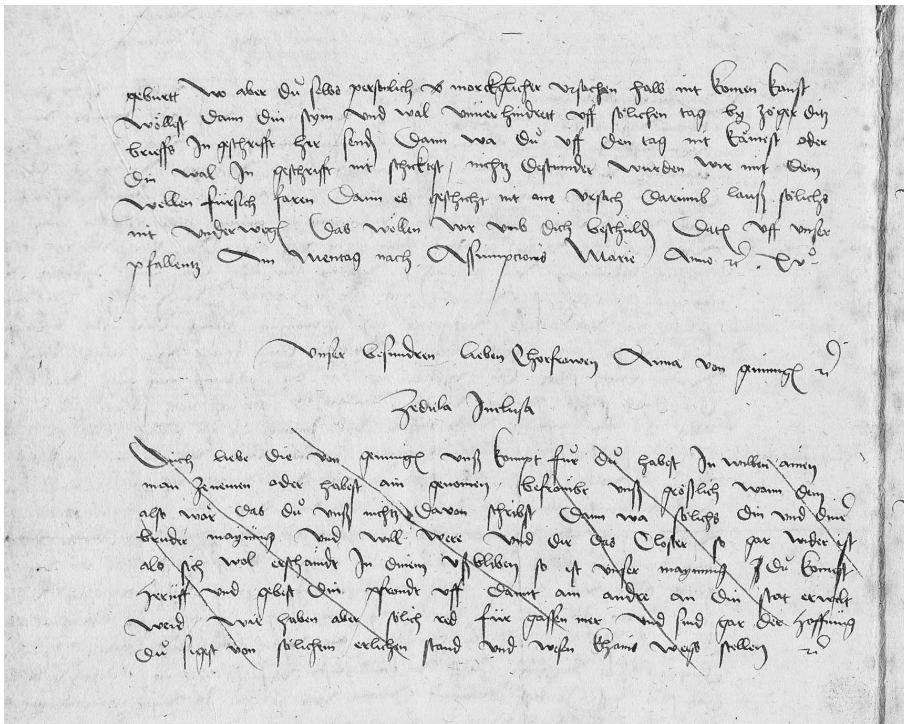 geburtt wo aber du selbs personlich uß mercklicher ursachen halb nit komen kanst
wöllest dann din stym und wal unverhindert uff sölichen tag by zöger ditz
brieffs In geschrifft her send Dann wa du uff den tag nit kämest oder
din wal In geschrift nit schicktest, nichtz destminder wurden wir mit dem
wellen fürsich faren Dann es geschicht nit one ursach Darumb lauß sölichs
nit underwegn Das wöllen wir umb dich beschuldn Datum uff unser
pfallentz Am Mentag nach Assumpcionis Marie Anno etc. XVo
Unser besundren lieben Chorfrowen Anna von gemingn etc.
Zedula Inclusa
Ouch liebe die von gemingn unß kompt für du habest In willen ainen
man zenemen oder habest ain genomen, befrömbt unß größlich wann dem
also wär das du unß nichtz davon schribst Dann wa sölichs din und diner
brüder maynung und will were und dir das Closter so gar wider ist
als sich wol erschaindt In dinem ußbliben so ist unser maynung du komest
heruff und gebest din pfrondt uff damit ain andre an din stat erwelt
werd Wir haben aber sölich red für gassen mer und sind gar der hoffnung
du sigest von sölichem erlichen stand und wesen khains wegs stellen etc.